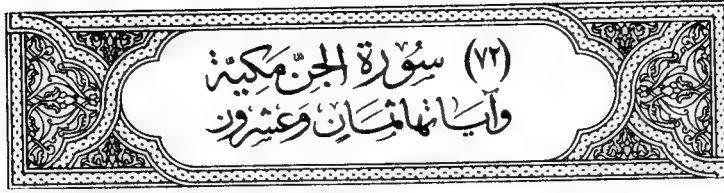 (٧٢) سُوْرَة الجِنّ مَكِيَّة
وَآيَاتهَا ثمَانِ وَعشرُون